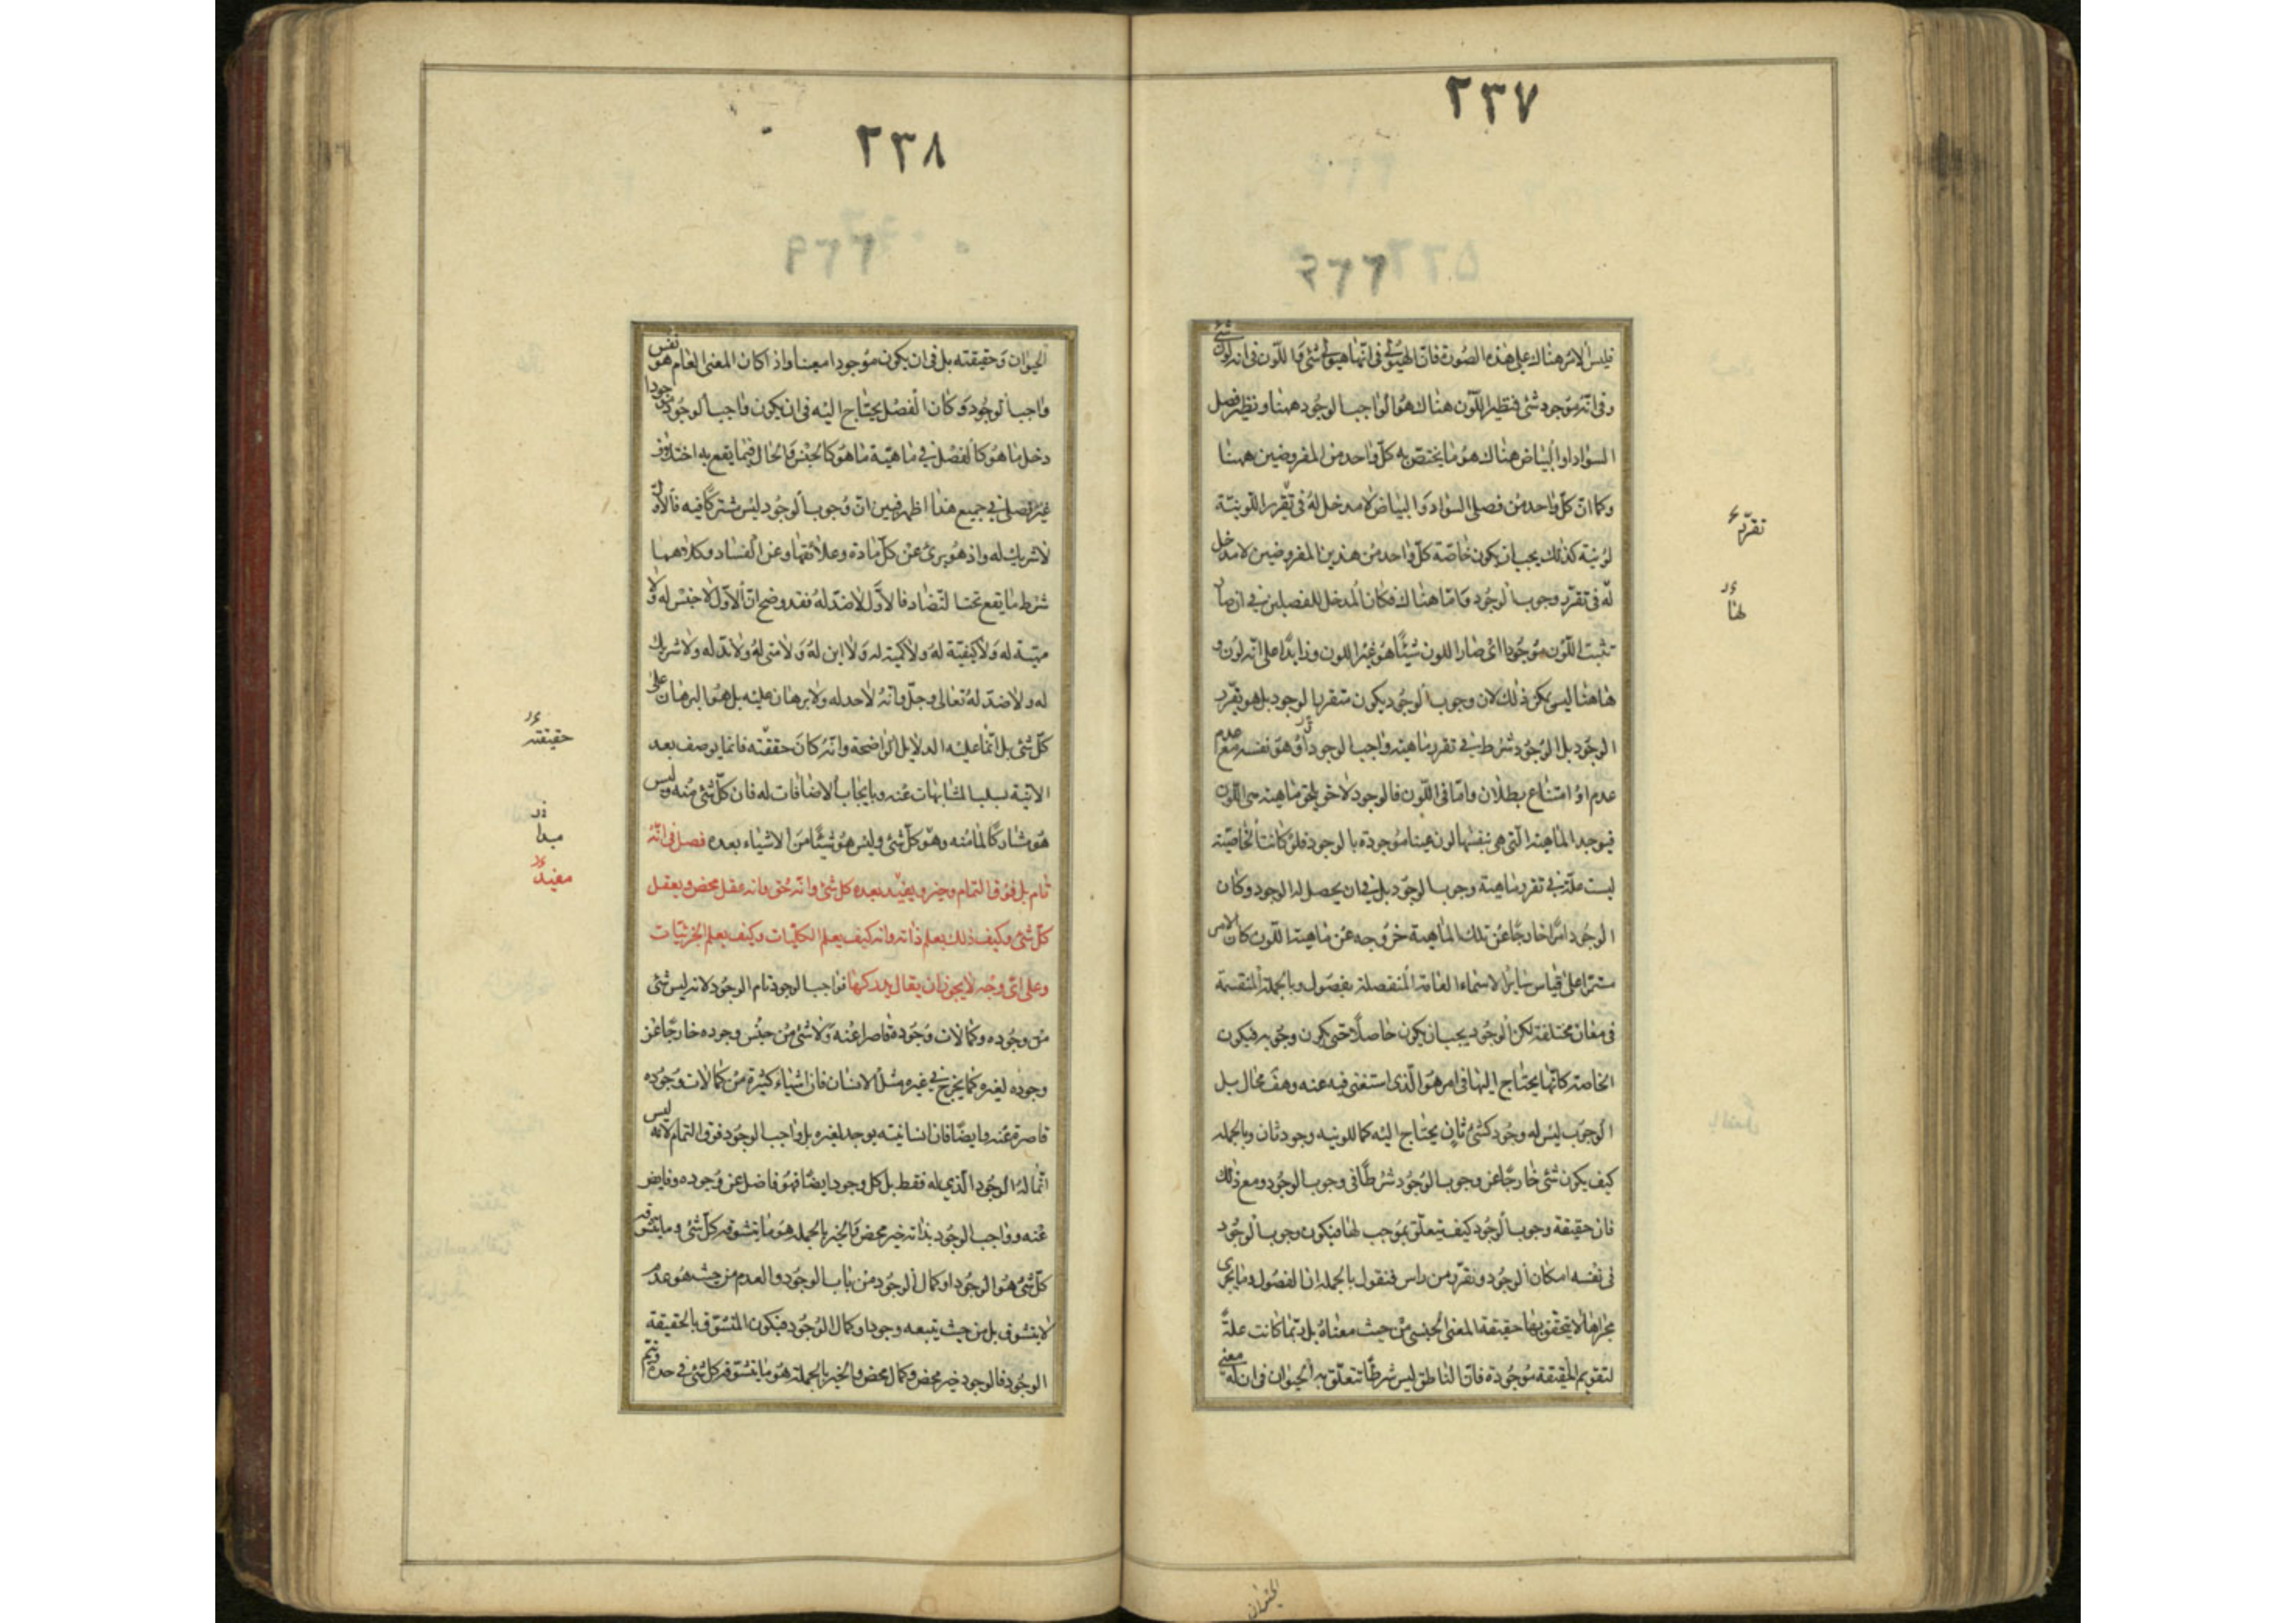 ٢٣٧
فليس الامر هناك على هذه الصورة فان الهيولى فى انها هيولى شئ واللون فى انه لون شئ
وفى انه موجود شئ فنظير اللون هناك هو الواجب الوجود ههنا ونظير فصل
السواد او البياض هناك هو ما يختص به كل واحد من المفروضين ههنا
وكما ان كل واحد من فصلى السواد والبياض لا مدخل له فى تقرر اللونية
لونية كذلك يجب ان يكون خاصة كل واحد من هذين المفروضين لا مدخل
له فى تقرر وجوب الوجود واما هناك فكان المدخل للفصلين فى ان صار
تثبت اللون موجودا اى صار اللون شيئا هو غير اللون وزايدا على انه لون و
هاهنا ليس يمكن ذلك لان وجوب الوجود يكون متقررا لوجود بل هو تقرر
الوجود بل الوجود شرط فى تقرر ماهية واجب الوجود او هو نفسه مع عدم
عدم او امتناع بطلان واما فى اللون فالوجود لاحق يلحق ماهية هى اللون
فيوجد الماهية التى هى بنفسها لون هينا موجودة بالوجود فلو كانت الخاصية
ليست علة فى تقرر ماهية وجوب الوجود بل فى ان يحصل له الوجود وكان
الوجود امرا خارجا عن تلك الماهية خروجه عن ماهية اللون كان الامر
مستمرا على قياس ساير الاشياء العامة المنفصلة بفصول وبالجملة المنقسمة
فى معان مختلفة لكن الوجود يجب ان يكون حاصلا حتى يكون وجوب فيكون
الخاصة كانها يحتاج اليها فى امر هو الذى استغنى فيه عنه وهف محال بل
الوجوب ليس له وجود كشئ ثان يحتاج اليه كما للونية وجود ثان وبالجمله
كيف يكون شئ خارجا عن وجوب الوجود شرطا فى وجوب الوجود ومع ذلك
فان حقيقة وجوب الوجود كيف تتعلق بموجب لها فيكون وجوب الوجود
فى نفسه امكان الوجود ونقرر من راس فنقول بالجمله ان الفصول وما يجرى
مجراها لا يتحقق بها حقيقة المعنى الجنسى من حيث معناه بل ربما كانت علة
لتقويم الحقيقة موجودة فان الناطق ليس شرطا تتعلق به الحيوان فى ان له معنى
تقرر
لها
الحيوان
٢٣٨
الحيوان وحقيقته بل فى ان يكون موجودا معينا واذا كان المعنى العام هو نفس
واجب الوجود وكان الفصل يحتاج اليه فى ان يكون واجب الوجود موجودا
دخل ما هو كالفصل فى ماهية ما هو كالجنس والحال فيما يقع به اختلاف
غير فصلى فى جميع هذا اظهر فبين ان وجوب الوجود ليس مشتركا فيه فالاول
لا شريك له واذ هو برئ عن كل مادة وعلائقها وعن الفساد وكلاهما
شرط ما يقع تحت التضاد فالاول لا ضد له فقد وضح ان الاول لا جنس له ولا
مهية له ولا كيفية له ولا كمية له ولا اين له ولا متى له ولا ند له ولا شريك
له ولا ضد له تعالى وجل وانه لا حد له ولا برهان عليه بل هو البرهان على
كل شئ بل انما عليه الدلايل الواضحة وانه كان حققته فانما يوصف بعد
الانية بسلب المشابهات عنه وبايجاب الاضافات له فان كل شئ منه وليس
هو مشاركا لما منه وهو كل شئ وليس هو شيئا من الاشياء بعده فصل فى انه
تام بل فوق التمام وخير ويفيد بعده كل شئ وانه حق وانه عقل محض ويعقل
كل شئ وكيف ذلك يعلم ذاته وانه كيف يعلم الكليات وكيف يعلم الجزئيات
وعلى اى وجه لا يجوز ان يقال يدركها فواجب الوجود تام الوجود لانه ليس شئ
من وجوده وكمالات وجوده قاصرا عنه ولا شئ من جنس وجوده خارجا عن
وجوده لغيره كما يخرج فى غيره مثل الانسان فان اشياء كثيرة من كمالات وجوده
قاصرة عنه وايضا فان انسانيته يوجد لغيره بل واجب الوجود فوق التمام لانه ليس
انما له الوجود الذى له فقط بل كل وجود ايضا فهو فاضل عن وجوده وفايض
عنه وواجب الوجود بذاته خير محض والخير بالجمله هو ما يتشوقه كل شئ وما يتشوقه
كل شئ هو الوجود او كمال الوجود من باب الوجود والعدم من حيث هو عدم
لا يتشوق بل من حيث يتبعه وجود او كمال الوجود فيكون المتشوق بالحقيقة
الوجود فالوجود خير محض وكمال محض والخير بالجملة هو ما يتشوقه كل شئ فى حده ويتم
حقيقته
مبدا
مفيد